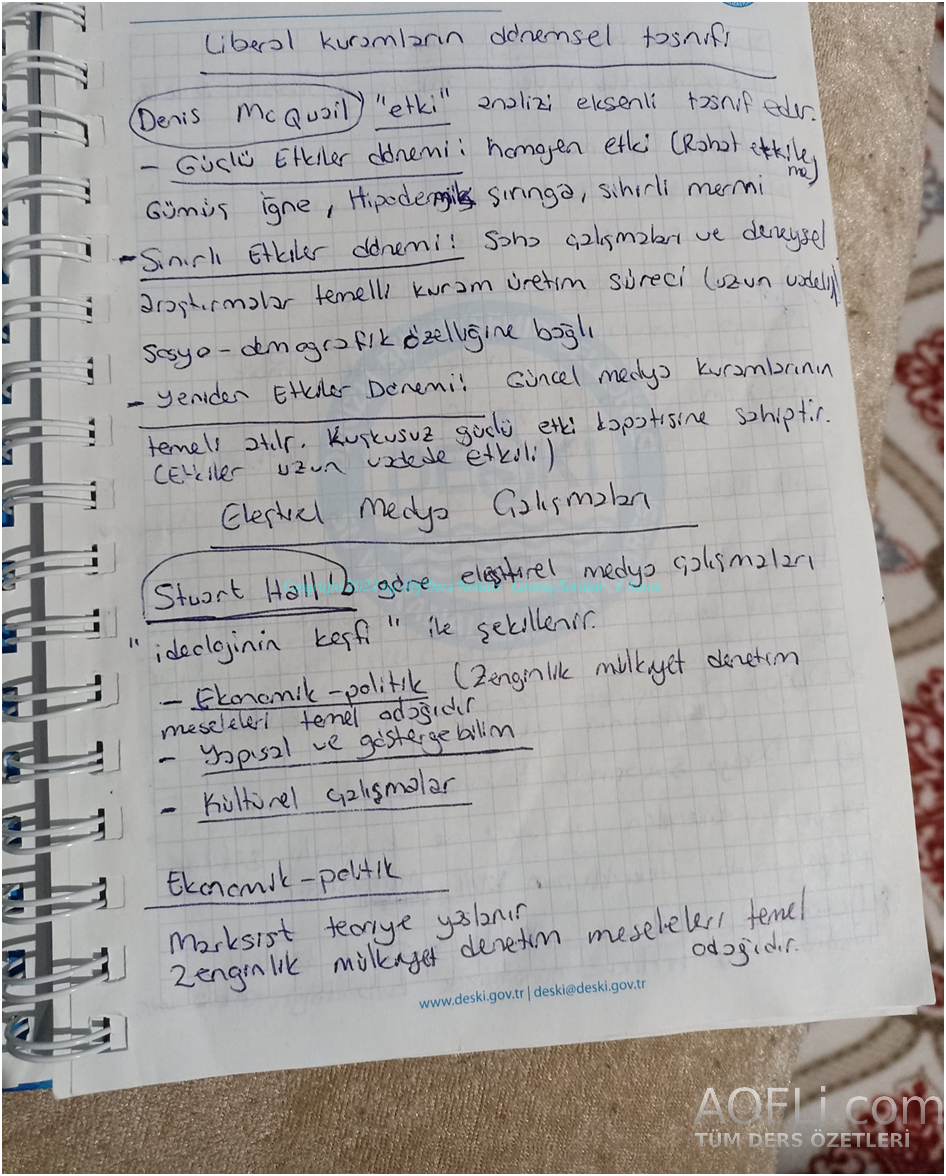 Liberal kuramların dönemsel tasnifi
Denis McQuail "etki" analizi eksenli tasnif eder.
- Güçlü Etkiler dönemi: homojen etki (Rahat etkile
me)
Gümüş iğne, Hipodermik şırınga, sihirli mermi
- Sınırlı Etkiler dönemi: Saha çalışmaları ve deneysel
araştırmalar temelli kuram üretim süreci (uzun vadeli)
sosyo-demografik özelliğine bağlı
- Yeniden Etkiler Dönemi: Güncel medya kuramlarının
temeli atılır. Kuşkusuz güçlü etki kapatisine sahiptir.
(Etkiler uzun vadede etkili)
Eleştirel Medya Çalışmaları
Stuart Hall'a göre eleştirel medya çalışmaları
"ideolojinin keşfi" ile şekillenir.
- Ekonomik-politik (Zenginlik mülkiyet denetim
meseleleri temel odağıdır
- Yapısal ve göstergebilim
- Kültürel çalışmalar
Ekonomik-politik
Marksist teoriye yaslanır
Zenginlik mülkiyet denetim meseleleri temel
odağıdır.
www.deski.gov.tr | deski@deski.gov.tr
AOFLi.com
TÜM DERS ÖZETLERİ